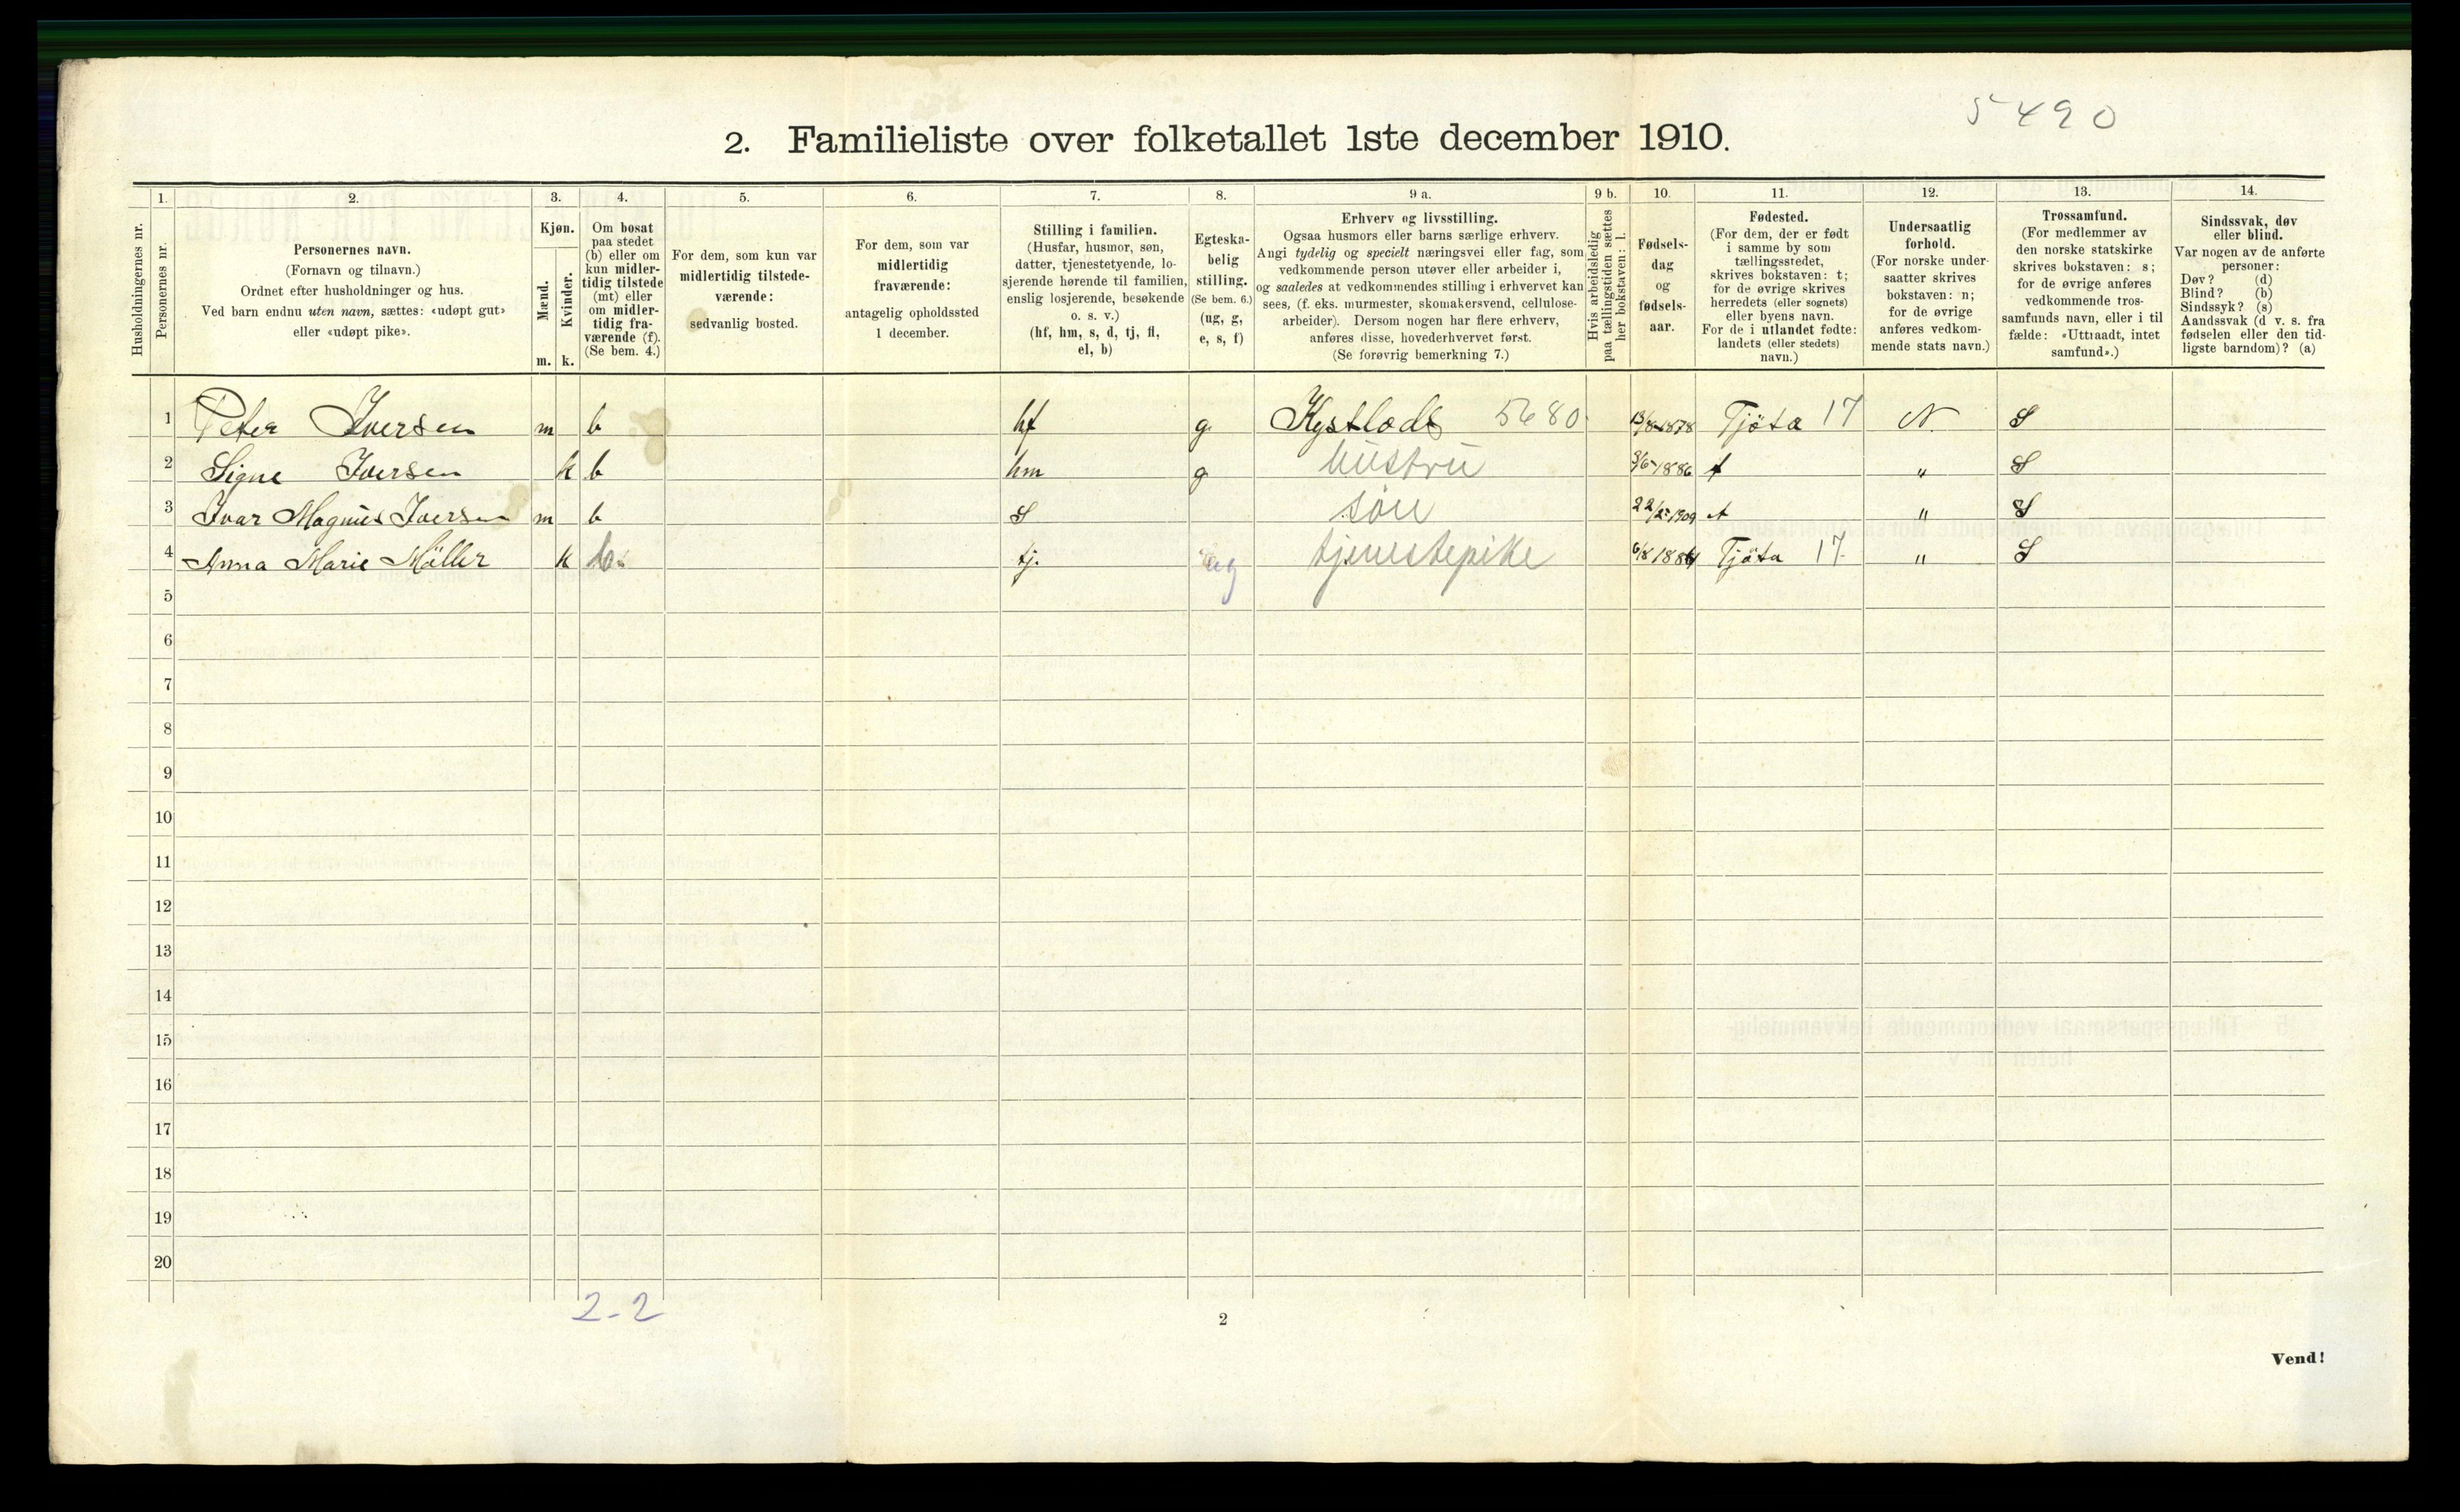 5490
2. Familieliste over folketallet 1ste december 1910.
Husholdningernes nr.
1. Personernes nr.
2. Personernes navn.
(Fornavn og tilnavn.)
Ordnet efter husholdninger og hus.
Ved barn endnu uten navn, sættes: «udøpt gut»
eller «udøpt pike».
3. Kjøn.
Mænd. m.
Kvinder. k.
4. Om bosat
paa stedet
(b) eller om
kun midler-
tidig tilstede
(mt) eller
om midler-
tidig fra-
værende (f).
(Se bem. 4.)
5. For dem, som kun var
midlertidig tilstede-
værende:
sedvanlig bosted.
6. For dem, som var
midlertidig
fraværende:
antagelig opholdssted
1 december.
7. Stilling i familien.
(Husfar, husmor, søn,
datter, tjenestetyende, lo-
sjerende hørende til familien,
enslig losjerende, besøkende
o. s. v.)
(hf, hm, s, d, tj, fl,
el, b)
8. Egteska-
belig
stilling.
(Se bem. 6.)
(ug, g,
e, s, f)
9 a. Erhverv og livsstilling.
Ogsaa husmors eller barns særlige erhverv.
Angi tydelig og specielt næringsvei eller fag, som
vedkommende person utøver eller arbeider i,
og saaledes at vedkommendes stilling i erhvervet kan
sees, (f. eks. murmester, skomakersvend, cellulose-
arbeider). Dersom nogen har flere erhverv,
anføres disse, hovederhvervet først.
(Se forøvrig bemerkning 7.)
9 b. Hvis arbeidsledig
paa tællingstiden sættes
her bokstaven: l.
10. Fødsels-
dag
og
fødsels-
aar.
11. Fødested.
(For dem, der er født
i samme by som
tællingsstedet,
skrives bokstaven: t;
for de øvrige skrives
herredets (eller sognets)
eller byens navn.
For de i utlandet fødte:
landets (eller stedets)
navn.)
12. Undersaatlig
forhold.
(For norske under-
saatter skrives
bokstaven: n;
for de øvrige
anføres vedkom-
mende stats navn.)
13. Trossamfund.
(For medlemmer av
den norske statskirke
skrives bokstaven: s;
for de øvrige anføres
vedkommende tros-
samfunds navn, eller i til
fælde: «Uttraadt, intet
samfund».)
14. Sindssvak, døv
eller blind.
Var nogen av de anførte
personer:
Døv? (d)
Blind? (b)
Sindssyk? (s)
Aandssvak (d v. s. fra
fødselen eller den tid-
ligste barndom)? (a)
1 Peter Iversen m b hf g. Kystlods 5680 13/8-1878 Tjöta 17 N. S
2 Signe Iversen k b hm g hustru 3/6-1886 t " S
3 Ivar Magnus Iversen m b S søn 22/2-1909 t " S
4 Anna Marie Möller k b tj. ug tjenestepike 6/8 1884 Tjöta 17 " S
5
6
7
8
9
10
11
12
13
14
15
16
17
18
19
20
2-2
2
Vend!